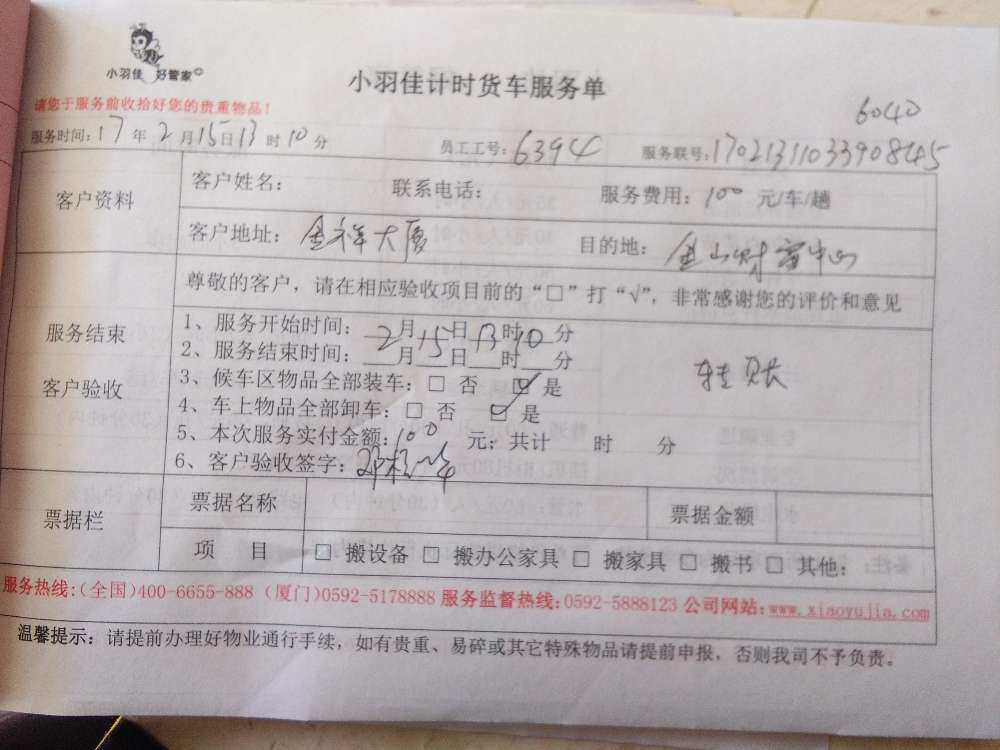 小羽佳 好管家
小羽佳计时货车服务单
请您于服务前收拾好您的贵重物品！
6040
服务时间：17年2月15日13时10分 员工工号：6394 服务联号：17021311033908145
客户资料
客户姓名： 联系电话： 服务费用：100元/车/趟
客户地址：金祥大厦 目的地：金山财富中心
服务结束
客户验收
尊敬的客户，请在相应验收项目前的“□”打“√”，非常感谢您的评价和意见
1、服务开始时间：2月15日13时10分
2、服务结束时间：___月___日___时___分
3、候车区物品全部装车：□ 否 ☑ 是
4、车上物品全部卸车：□ 否 ☑ 是
5、本次服务实付金额：100元；共计 时 分
6、客户验收签字：
挂账
票据栏
票据名称 票据金额
项 目 □ 搬设备 □ 搬办公家具 □ 搬家具 □ 搬书 □ 其他：
服务热线：(全国)400-6655-888 (厦门)0592-5178888 服务监督热线：0592-5888123 公司网站：www.xiaoyujia.com
温馨提示：请提前办理好物业通行手续，如有贵重、易碎或其它特殊物品请提前申报，否则我司不予负责。